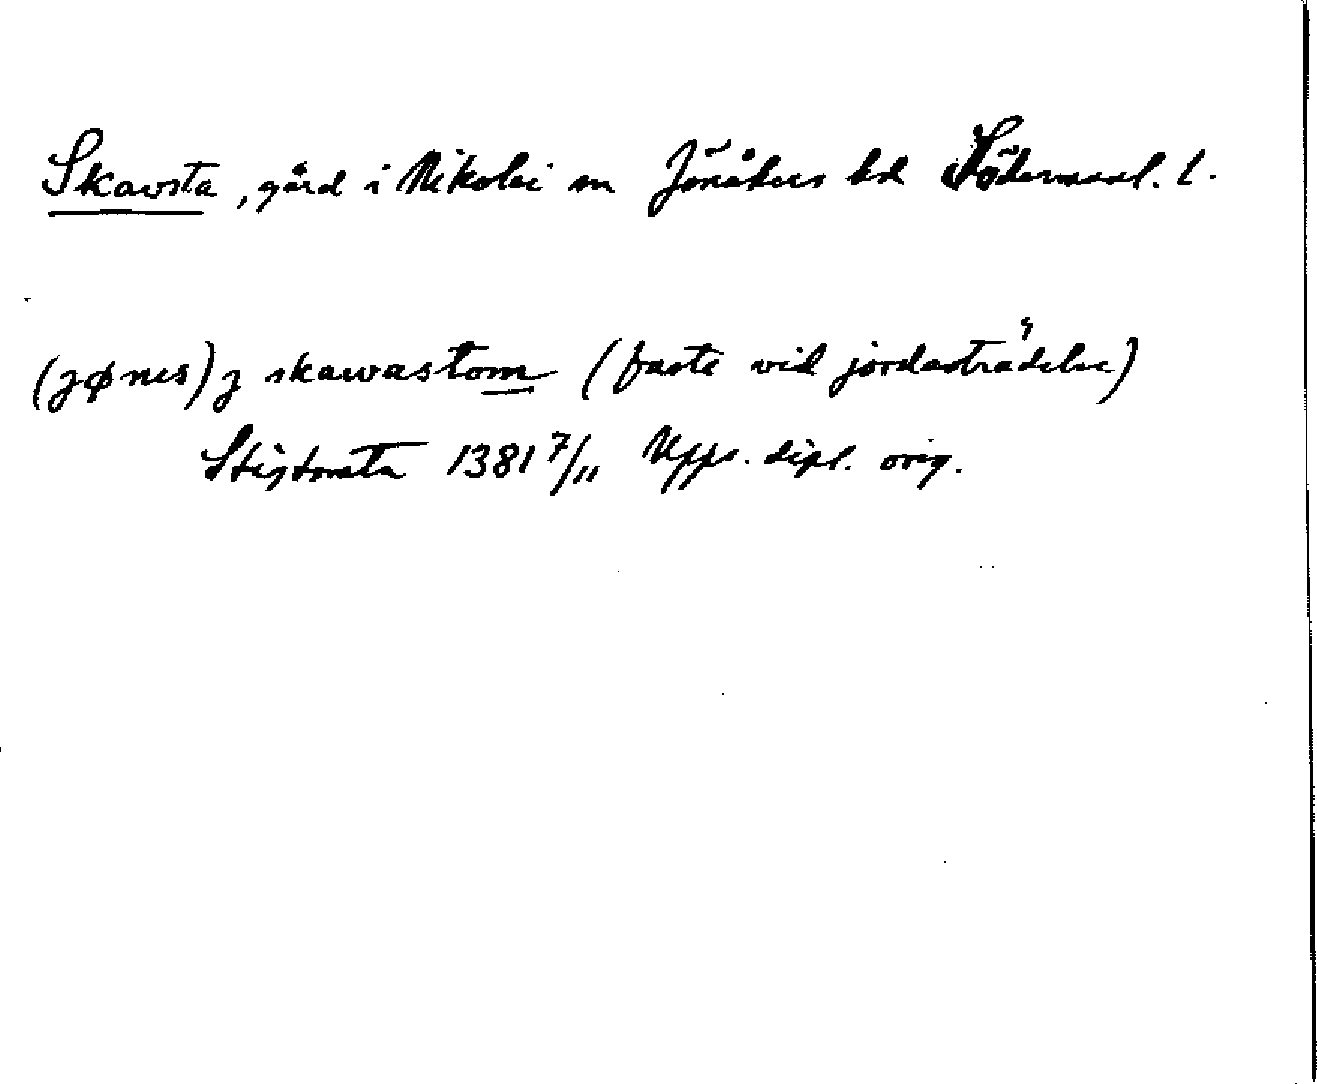 Skavsta, gård i Nikolai sn Jönåkers hd Södermanl. l.
(jønes) j skawastom (faste vid jordaträdelse)
Stigtomta 1381 7/11 Upps. dipl. orig.